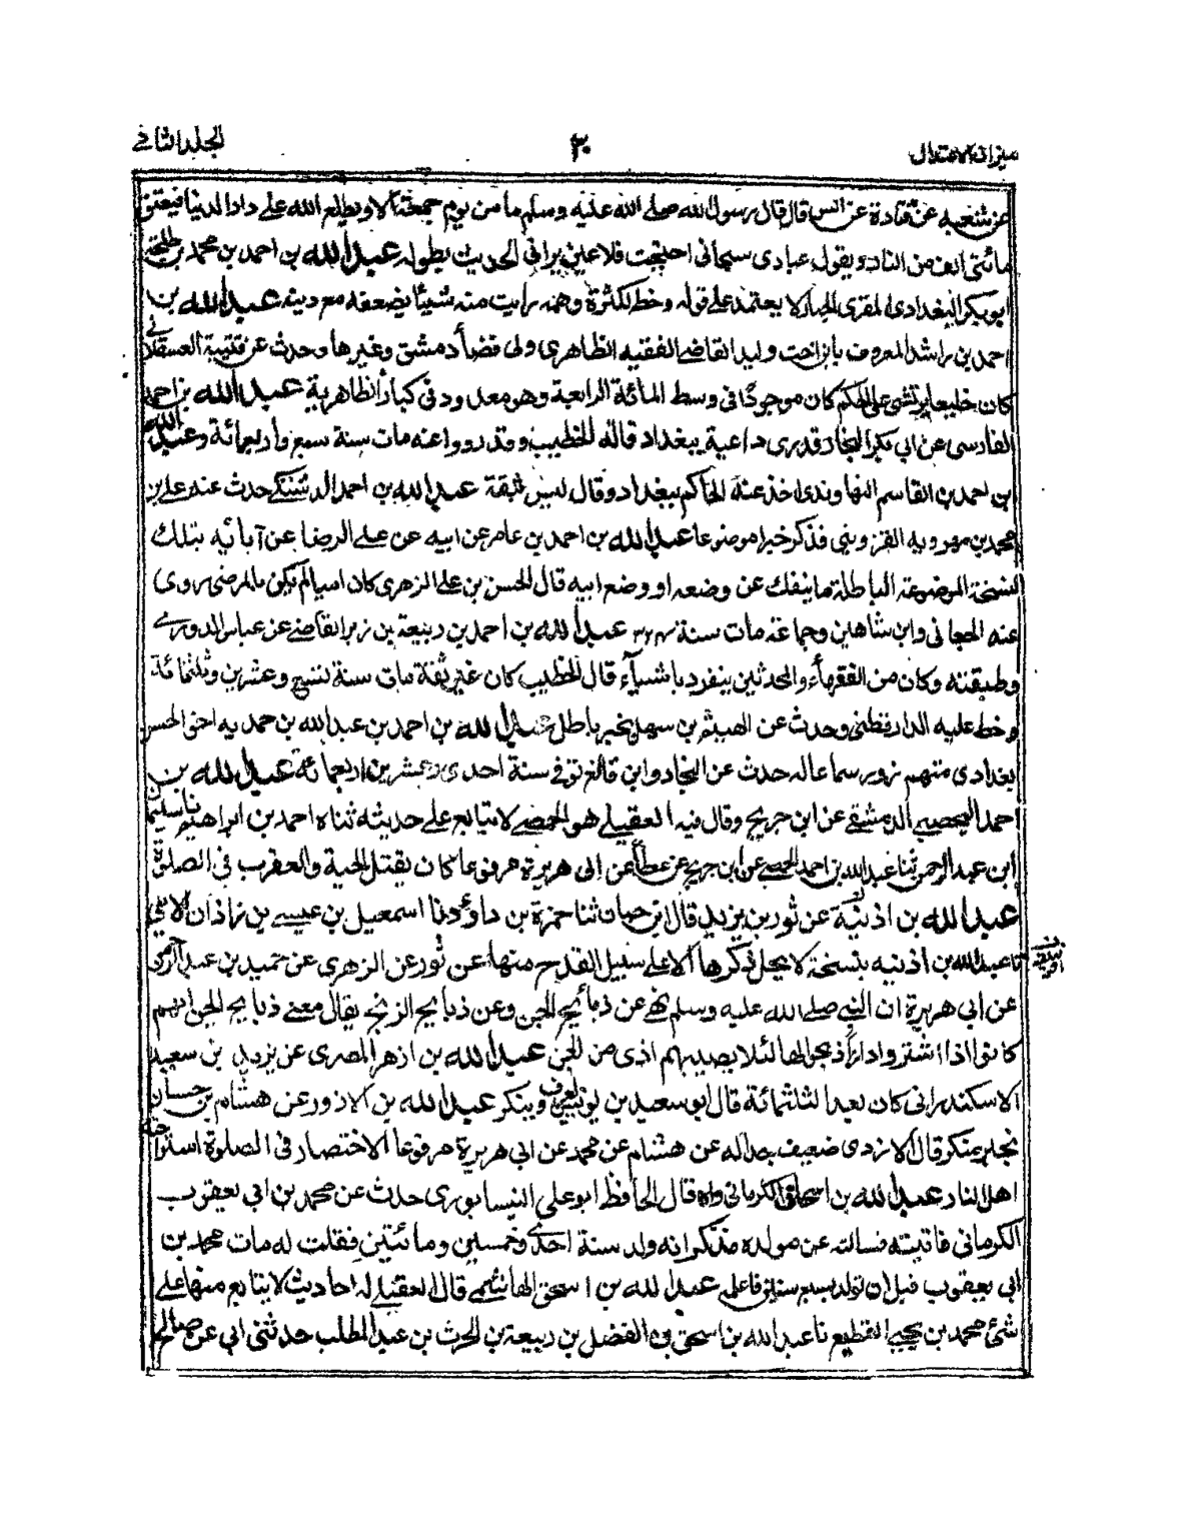 ميزان الاعتدال
٣٠
الجلد الثاني
عن شعبه عن قتادة عن انس قال قال رسول الله صلى الله عليه وسلم ما من يوم جمعة الا ويطلع الله على دار الدنيا فيعتق
مائتى الف من النار ويقول عبادى سبحانى احتجبت فلا عين ترانى الحديث بطوله عبد الله بن احمد بن محمد بن طلحة
ابو بكر البغدادى المقرى الخباز لا يعتمد على قوله وخطه لكثرة وهمه رايت منه شيئا يضعفه مع دينه عبد الله بن
احمد بن راشد المعروف بابن اخت وليد القاضى الفقيه الظاهرى ولى قضأ دمشق وغيرها وحدث عن قتيبة العسقلانى
كان خليعا يرتشى على الحكم كان موجودًا فى وسط المائة الرابعة وهو معدود فى كبار الظاهرية عبد الله بن احمد
الفارسى عن ابى بكر النجاد قدرى داعية ببغداد قاله الخطيب وقد رووا عنه مات سنة سبع وأربعمائة وعبد الله
بن احمد بن القاسم النهاوندى اخذ عنه الحاكم ببغداد وقال ليس بثقة عبد الله بن احمد الدشتكى حدث عنه على بن
محمد بن مهرويه القزوينى فذكر خبرا موضوعا عبد الله بن احمد بن عامر عن ابيه عن على الرضا عن آبائه بتلك
النسخة الموضوعة الباطلة ما ينفك عن وضعه او وضع ابيه قال الحسن بن على الزهرى كان اميا لم يكن بالمرضى روى
عنه الجعابى وابن شاهين وجماعة مات سنة ٣٢٤ عبد الله بن احمد بن ربيعة بن زبر القاضى عن عباس الدورى
وطبقته وكان من الفقهأء والمحدثين ينفرد باشيآء قال الخطيب كان غير ثقة مات سنة تسع وعشرين وثلثمائة
وخط عليه الدارقطنى وحدث عن الهيثم بن سهل بخبر باطل عبد الله بن احمد بن عبد الله بن حمديه اخى الحسن
بغدادى متهم زور سماعا له حدث عن النجاد وابن قانع توفى سنة احدى وعشر بن اربعمائة عبد الله بن
احمد اليحصبى الدمشقى عن ابن جريج وقال فيه العقيلى هو الحمصى لا يتابع على حديثه ثناه احمد بن ابراهيم نا سليمان
ابن عبد الرحمن ثنا عبد الله بن احمد الحمصى عن ابن جريج عن عطأ عن ابى هريرة مرفوعا كان يقتل الحية والعقرب فى الصلوة
عبد الله بن اذينة عن ثور بن يزيد قال ابن حبان ثنا حمزة بن داؤد نا اسمعيل بن عيسى بن زاذان الابلى
نا عبد الله بن اذنيه بنسخة لا يحل ذكرها الا على سبيل القدح منها عن ثور عن الزهرى عن حميد بن عبد الرحمن
عن ابى هريرة ان النبى صلى الله عليه وسلم نهى عن ذبأيح الجن وعن ذبايح الزنج يقال معنى ذبايح الجن انهم
كانوا اذا اشتروا داراً ذبحوا لها لئلا يصيبهم اذى من الجن عبد الله بن ازهر المصرى عن يزيد بن سعيد
الاسكندرانى كان بعد الثلثمائة قال ابو سعيد بن يونس تعرف وينكر عبد الله بن الازور عن هشام بن حسان
بخبر منكر قال الازدى ضعيف جدا له عن هشام عن محمد عن ابى هريرة مرفوعا الاختصار فى الصلوة استراحة
اهل النار عبد الله بن اسحاق الكرمانى واه قال الحافظ ابو على النيسابورى حدث عن محمد بن ابى يعقوب
الكرمانى فاتيته فسالته عن مولده فذكر انه ولد سنة احدى وخمسين ومائتين فقلت له مات محمد بن
ابى يعقوب قبل ان تولد بسبع سنين فاعلمه عبد الله بن اسحق الهاشمى قال العقيلى له احاديث لا يتابع منها على
شئ محمد بن يحيى القطيعى نا عبد الله بن اسحق بن الفضل بن ربيعة بن الحرث بن عبد المطلب حدثنى ابى عن صالح